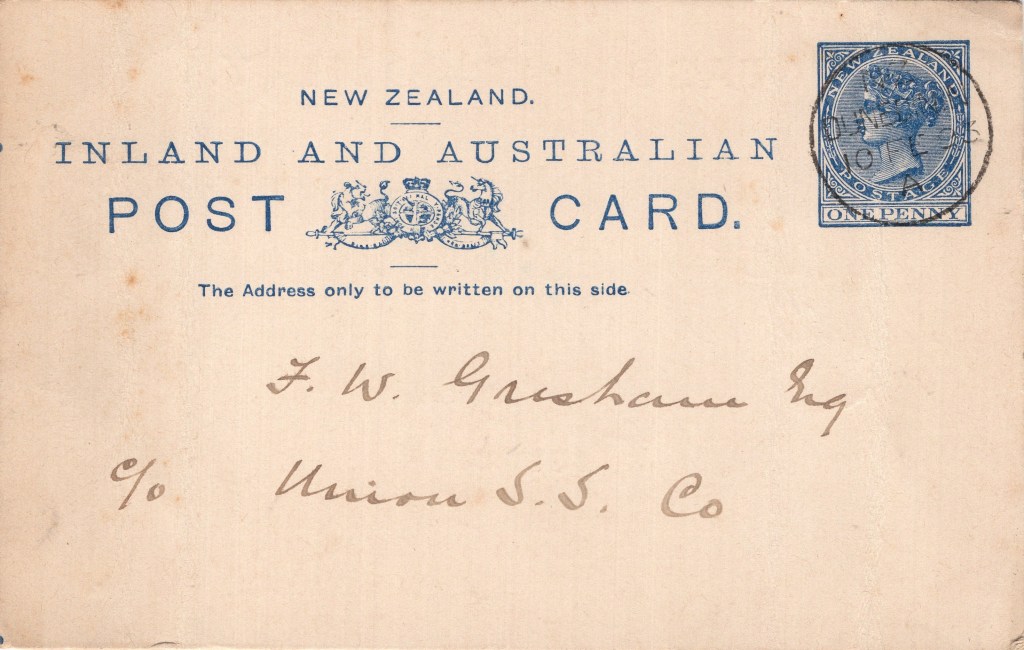 NEW ZEALAND.
INLAND AND AUSTRALIAN
POST CARD.
The Address only to be written on this side.
NEW ZEALAND
POSTAGE
ONE PENNY
DUNEDIN
A
F. W. Gresham Esq
c/o Union S. S. Co